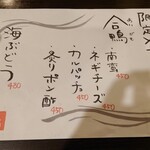 限定メ
合鴨
あいがも
・南蛮
450
・ネギチーズ
450
・カルパッチョ
450
・炙りポン酢
450
・海ぶどう
480